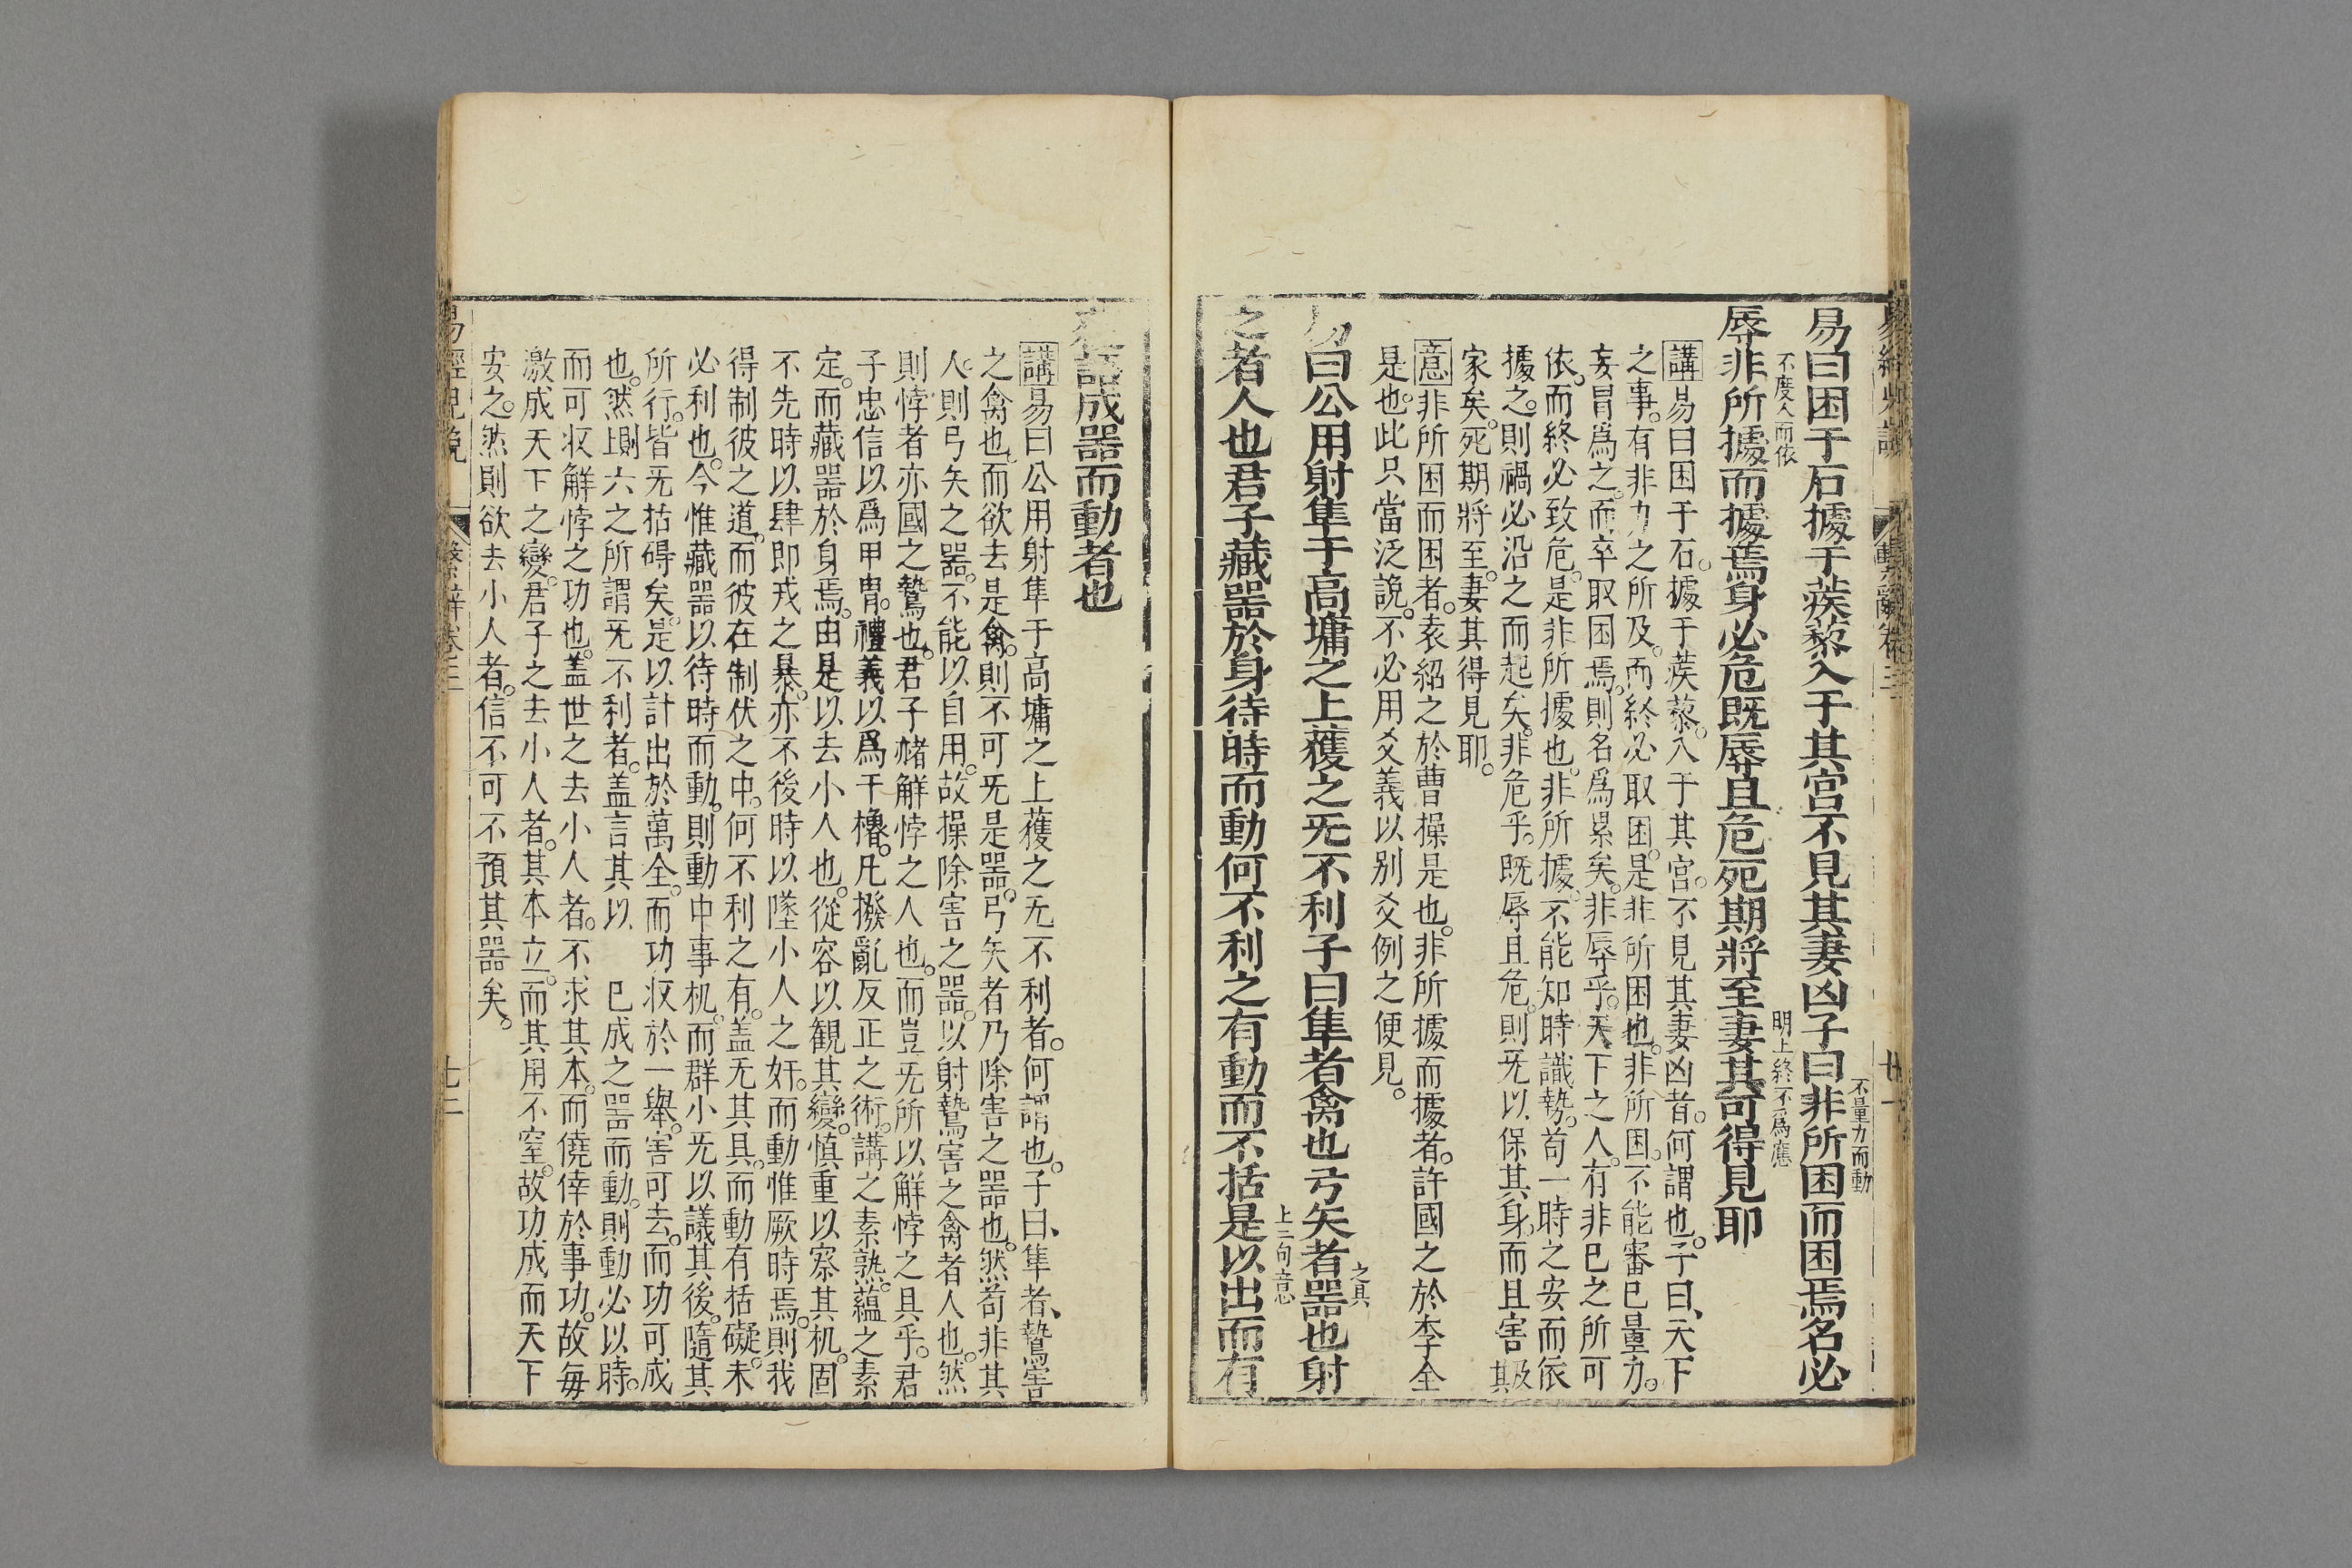 易曰困于石據于蒺藜入于其宮不見其妻凶子曰非所困而困焉名必
不量力而動
不度人而依
辱非所據而據焉身必危既辱且危死期將至妻其可得見耶
明上終不爲應
講易曰困于石據于蒺藜入于其宮不見其妻凶者何謂也子曰天下
之事有非力之所及而終必取困是非所困也非所困不能審已量力
妄冒爲之而卒取困焉則名爲累矣非辱乎天下之人有非已之所可
依而終必致危是非所據也非所據不能知時識勢苟一時之安而依
據之則禍必沿之而起矣非危乎既辱且危則旡以保其身而且害及其
家矣死期將至妻其得見耶
意非所困而困者袁紹之於曹操是也非所據而據者許國之於李全
是也此只當泛說不必用爻義以别爻例之便見
易曰公用射隼于高墉之上獲之旡不利子曰隼者禽也弓矢者器也射
之具
之者人也君子藏器於身待時而動何不利之有動而不括是以出而有
上二句意
獲語成器而動者也
講易曰公用射隼于高墉之上獲之旡不利者何謂也子曰隼者鷙害
之禽也而欲去是禽則不可旡是器弓矢者乃除害之器也然苟非其
人則弓矢之器不能以自用故操除害之器以射鷙害之禽者人也然
則悖者亦國之鷙也君子楮解悖之人也而豈旡所以解悖之具乎君
子忠信以爲甲胄禮義以爲干櫓凡撥亂反正之術講之素熟蘊之素
定而藏器於身焉由是以去小人也從容以観其變慎重以察其机固
不先時以肆即戎之暴亦不後時以墜小人之奸而動惟厥時焉則我
得制彼之道而彼在制伏之中何不利之有盖无其具而動有括礙未
必利也今惟藏器以待時而動則動中事机而群小旡以議其後隨其
所行皆旡括碍矣是以計出於萬全而功収於一舉害可去而功可成
也然則六之所謂旡不利者盖言其以 巳成之器而動則動必以時
而可収解悖之功也盖世之去小人者不求其本而僥倖於事功故每
激成天下之變君子之去小人者其本立而其用不窒故功成而天下
安之然則欲去小人者信不可不預其器矣